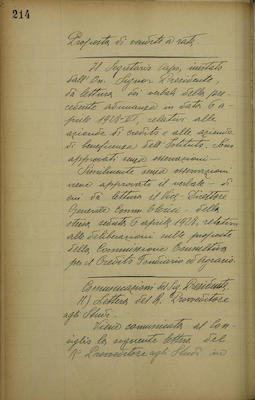 214
Proposta di vendite a rate.
Il Segretario capo, invitato
dall'On. Signor Presidente,
dà lettura del verbale della pre-
cedente adunanza in data 6 a-
prile 1928-VI, relativo alle
aziende di credito e alle aziende
di beneficenza dell'Istituto. Sono
approvati senza osservazioni -
Similmente senza osservazioni
viene approvato il verbale - di
cui dà lettura il Vice-Direttore
Generale Comm. - della
stessa seduta 6 aprile 1928, relativo
alle deliberazioni sulle proposte
della Commissione Consultiva
per il Credito Fondiario ed Agrario.
Comunicazioni del Sig. Presidente.
A) Lettera del R. Provveditore
agli Studi.
Viene comunicata al Con-
siglio la seguente lettera del
R. Provveditore agli Studi in